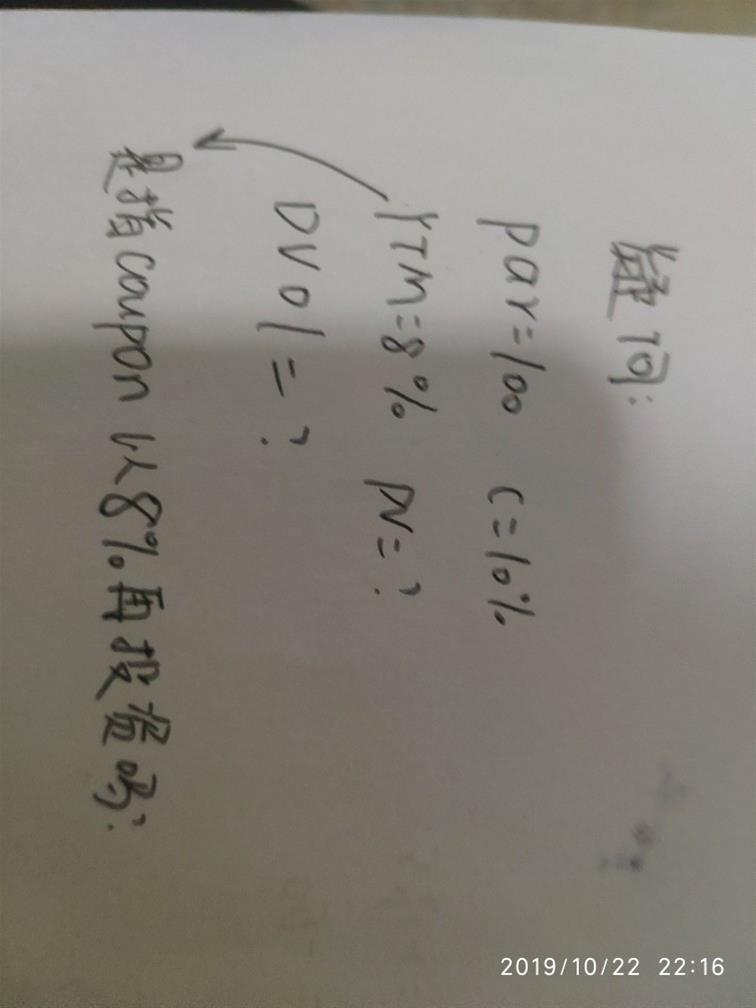 疑问:
par=100 C=10%
YTM=8% PV=?
DV01=?
是指coupon以8%再投资吗?
2019/10/22 22:16